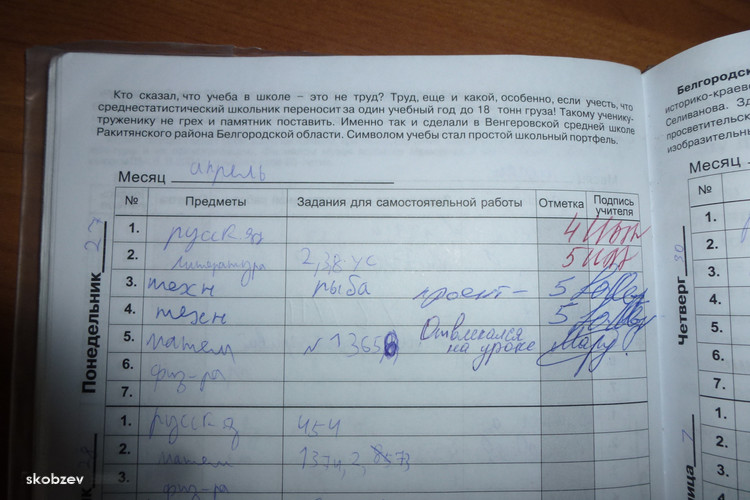 Кто сказал, что учеба в школе – это не труд? Труд, еще и какой, особенно, если учесть, что
среднестатистический школьник переносит за один учебный год до 18 тонн груза! Такому ученику-
труженику не грех и памятник поставить. Именно так и сделали в Венгеровской средней школе
Ракитянского района Белгородской области. Символом учебы стал простой школьный портфель.
Месяц апрель
№ Предметы Задания для самостоятельной работы Отметка Подпись учителя
Понедельник 27
1. русск. яз 4
2. литература 2,3,8 ус 5
3. техн рыба проект – 5
4. техн 5
5. матем № 1365 Отвлекался на уроке
6. физ-ра
7.
1. русск яз 454
2. матем 1374, 2,
3. физ-ра
Белгородск
историко-краев
Селиванова. Зд
просветительск
изобразительны
Месяц
№
Четверг 30
1.
2.
3.
4.
5.
6.
7.
1.
2.
3.
skobzev